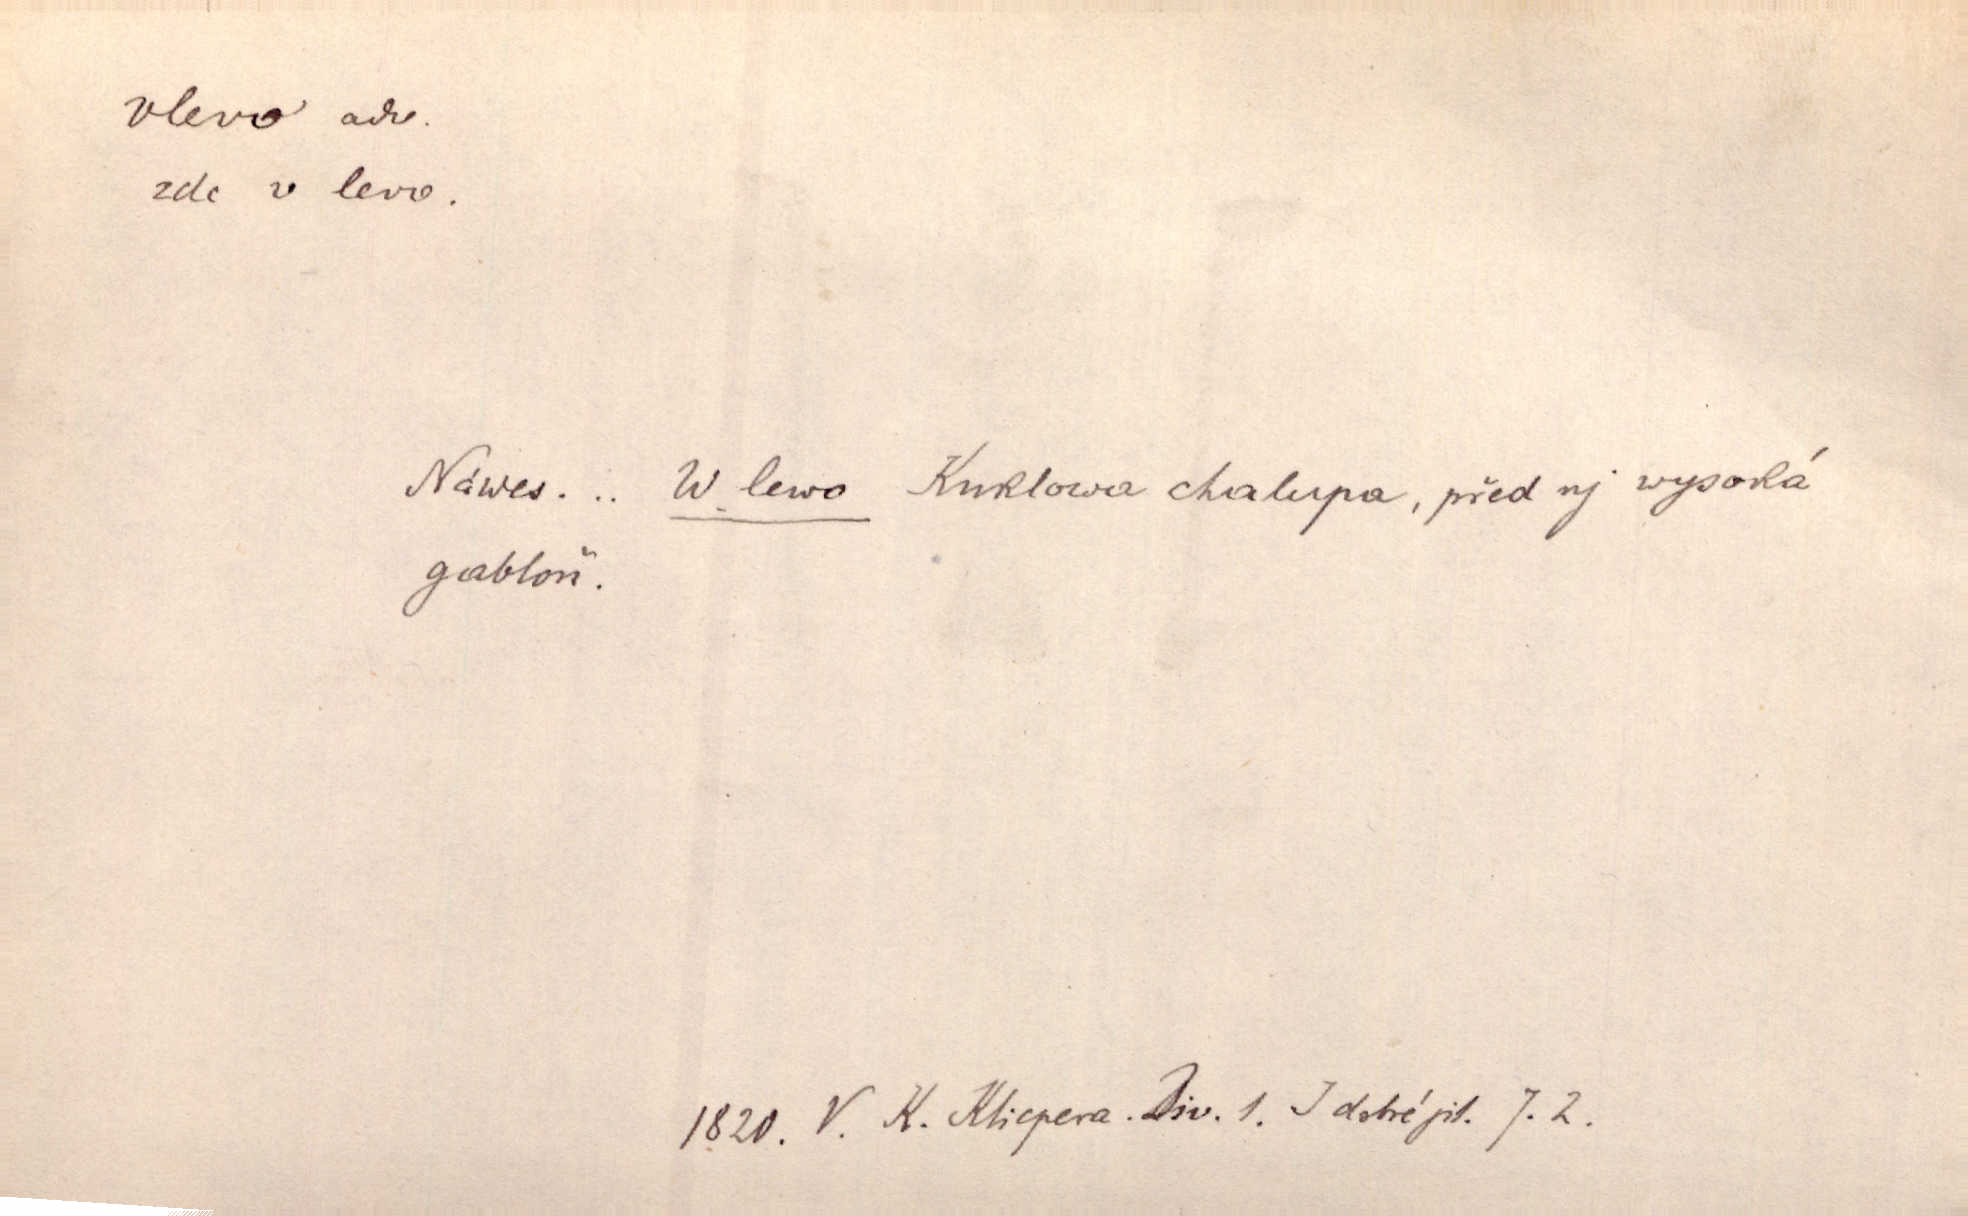 vlevo adv.
zde v levo.
Náwes. .. W lewo Kuklowa chalupa, před nj wysoká
gabloň.
1820. V. K. Klicpera. Div. 1. I dobré jit. 7. 2.